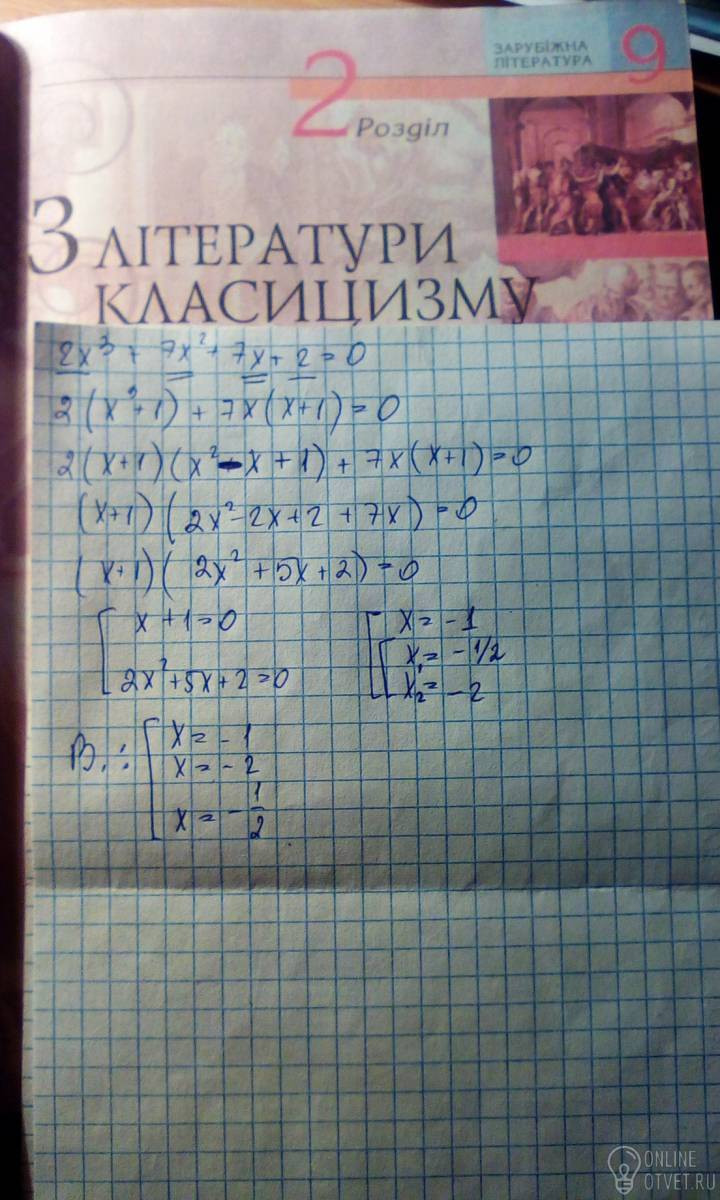 ЗАРУБІЖНА
ЛІТЕРАТУРА 9
2 Розділ
З ЛІТЕРАТУРИ
КЛАСИЦИЗМУ
2x³ + 7x² + 7x + 2 = 0
2(x³+1) + 7x(x+1) = 0
2(x+1)(x²-x+1) + 7x(x+1) = 0
(x+1)(2x²-2x+2+7x) = 0
(x+1)(2x²+5x+2) = 0
[ x+1=0 [ x = -1
2x²+5x+2=0 [ x₁ = -1/2
x₂ = -2
В.: [ x = -1
x = -2
x = -1/2
ONLINE
OTVET.RU